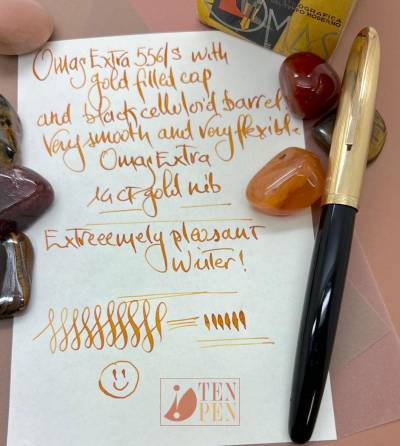 OGRAFICA
MODERNO
OMAS
Omas Extra 556/s with
gold filled cap
and black celluloid barrel.
Very smooth and very flexible.
Omas Extra
14ct gold nib
Extreeemely pleasant
Writer!
TEN
PEN